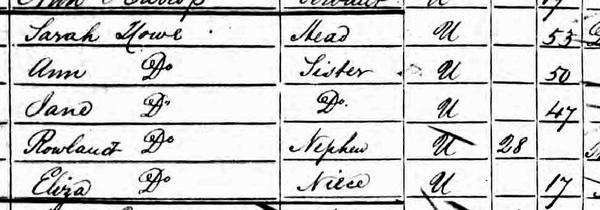 Servant U 17
Sarah Howe Head U 53
Ann Do Sister U 50
Jane Do Do. U 47
Rowland Do Nephew U 28
Eliza Do Niece U 17